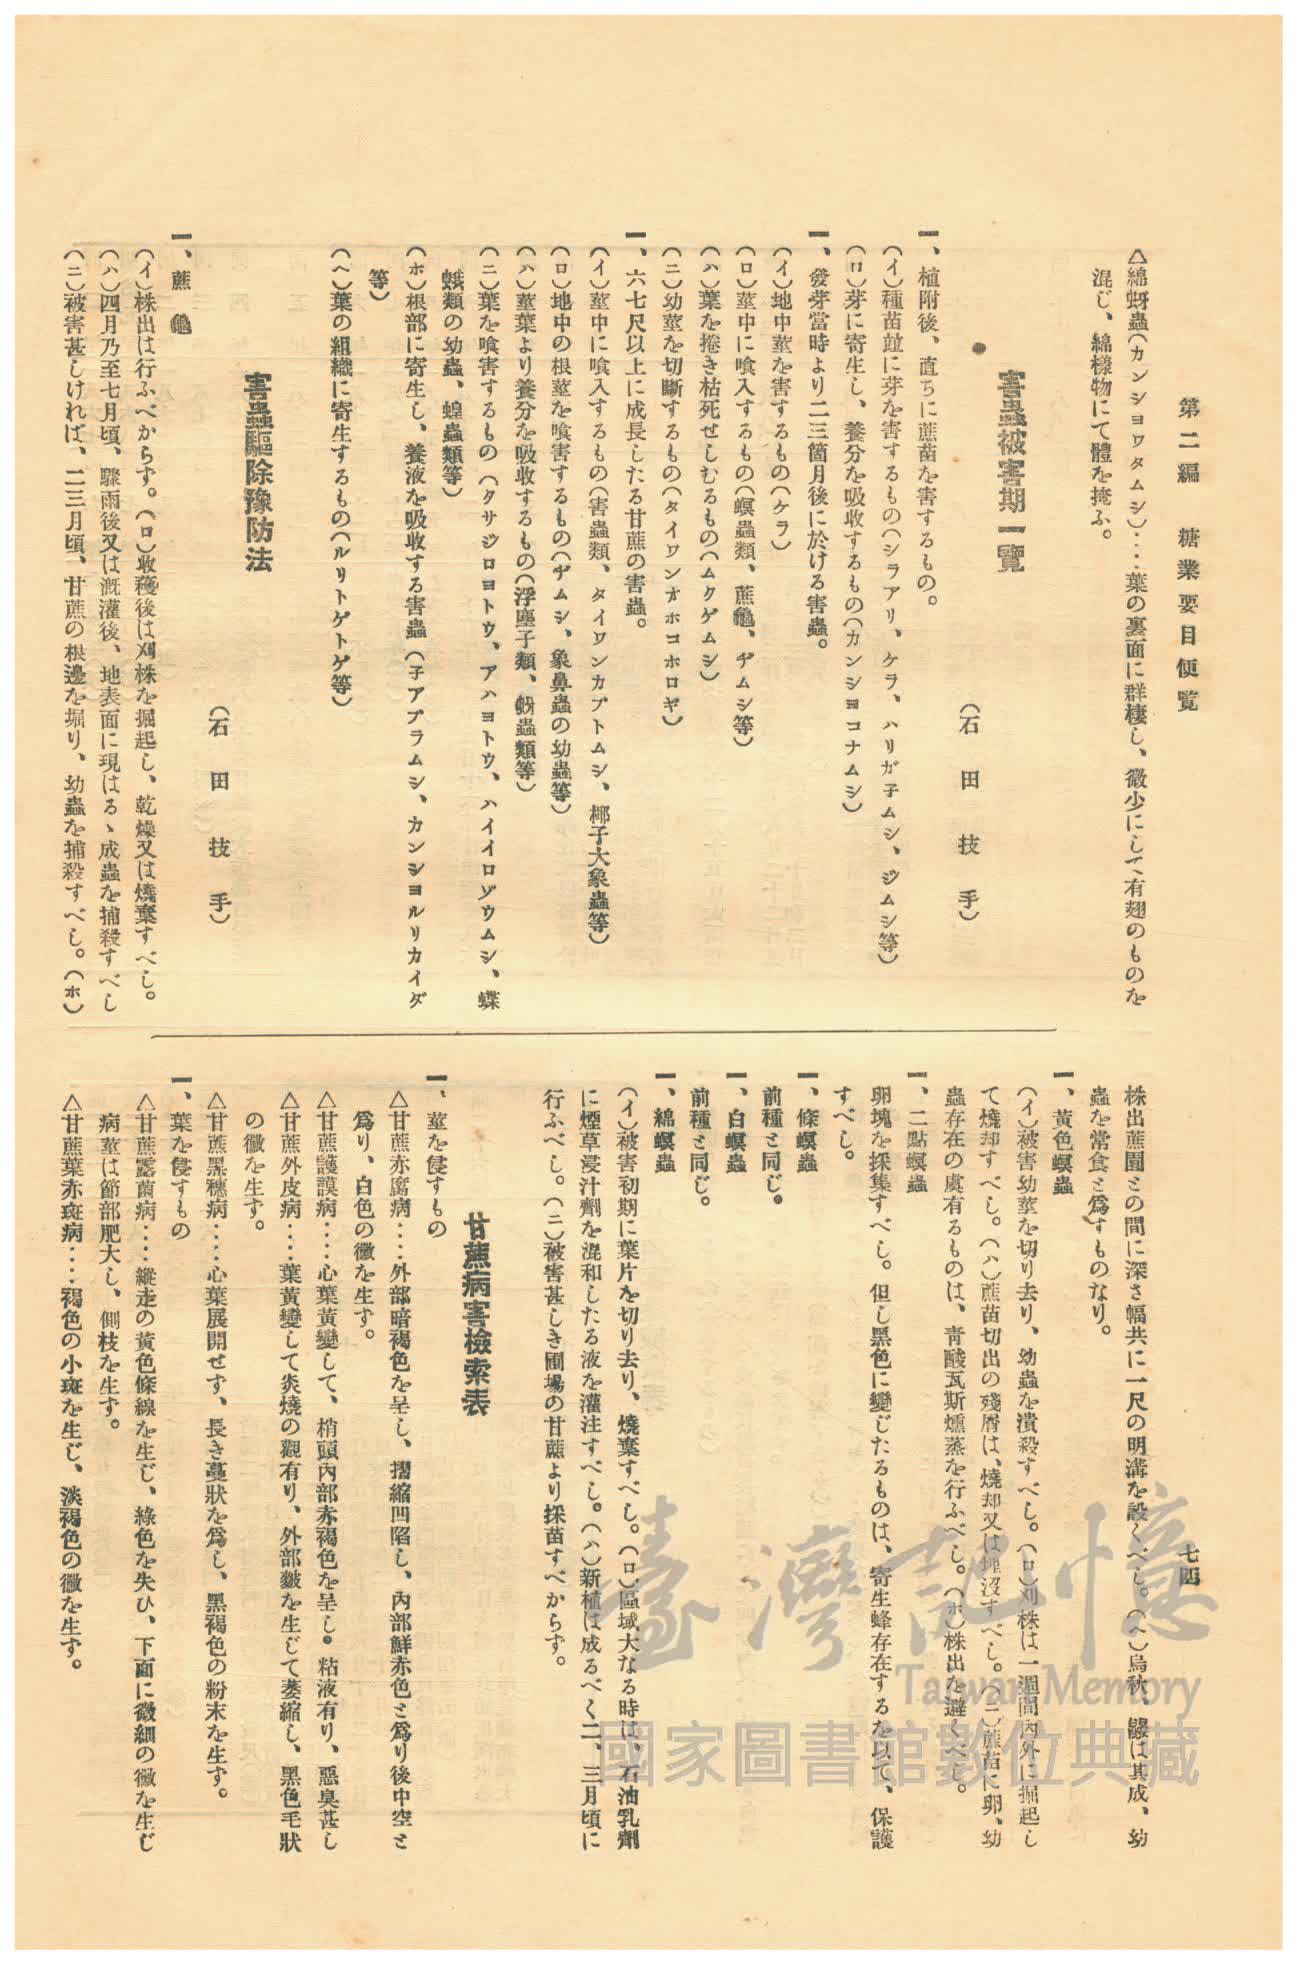 第二編　糖業要目便覽
七四
△綿蚜蟲(カンショワタムシ)‥‥葉の裏面に群棲し、微少にして有翅のものを
混じ、綿樣物にて體を掩ふ。
害蟲被害期一覽
(石田技手)
一、植附後、直ちに蔗苗を害するもの。
(イ)種苗竝に芽を害するもの(シラアリ、ケラ、ハリガ子ムシ、ジムシ等)
(ロ)芽に寄生し、養分を吸收するもの(カンショコナムシ)
一、發芽當時より二三箇月後に於ける害蟲。
(イ)地中莖を害するもの(ケラ)
(ロ)莖中に喰入するもの(螟蟲類、蔗龜、ヂムシ等)
(ハ)葉を捲き枯死せしむるもの(ムクゲムシ)
(ニ)幼莖を切斷するもの(タイワンオホコホロギ)
一、六七尺以上に成長したる甘蔗の害蟲。
(イ)莖中に喰入するもの(害蟲類、タイワンカブトムシ、椰子大象蟲等)
(ロ)地中の根莖を喰害するもの(ヂムシ、象鼻蟲の幼蟲等)
(ハ)莖葉より養分を吸收するもの(浮塵子類、蚜蟲類等)
(ニ)葉を喰害するもの(クサジロヨトウ、アハヨトウ、ハイイロゾウムシ、蝶
蛾類の幼蟲、蝗蟲類等)
(ホ)根部に寄生し、養液を吸收する害蟲(子アブラムシ、カンショルリカイダ
等)
(ヘ)葉の組織に寄生するもの(ルリトゲトゲ等)
害蟲驅除豫防法
(石田技手)
一、蔗龜
(イ)株出は行ふべからず。(ロ)收穫後は刈株を掘起し、乾燥又は燒棄すべし。
(ハ)四月乃至七月頃、驟雨後又は漑灌後、地表面に現はるゝ成蟲を捕殺すべし
(ニ)被害甚しければ、二三月頃、甘蔗の根邊を堀り、幼蟲を捕殺すべし。(ホ)
株出蔗園との間に深さ幅共に一尺の明溝を設くべし。(ヘ)烏秋、鼹は其成、幼
蟲を常食と爲すものなり。
一、黃色螟蟲
(イ)被害幼莖を切り去り、幼蟲を潰殺すべし。(ロ)刈株は一週間內外に掘起し
て燒却すべし。(ハ)蔗苗切出の殘屑は、燒却又は埋沒すべし。(ニ)蔗苗に卵、幼
蟲存在の虞有るものは、靑酸瓦斯燻蒸を行ふべし。(ホ)株出を避くべし。
一、二點螟蟲
卵塊を採集すべし。但し黑色に變じたるものは、寄生蜂存在するを以て、保護
すべし。
一、條螟蟲
前種と同じ。
一、白螟蟲
前種と同じ。
一、綿螟蟲
(イ)被害初期に葉片を切り去り、燒棄すべし。(ロ)區域大なる時は、石油乳劑
に煙草浸汁劑を混和したる液を灌注すべし。(ハ)新植は成るべく二、三月頃に
行ふべし。(ニ)被害甚しき圃場の甘蔗より採苗すべからず。
甘蔗病害檢索表
一、莖を侵すもの
△甘蔗赤腐病‥‥外部暗褐色を呈し、摺縮凹陷し、內部鮮赤色と爲り後中空と
爲り、白色の黴を生す。
△甘蔗護謨病‥‥心葉黃變して、梢頭內部赤褐色を呈し。粘液有り、惡臭甚し
△甘蔗外皮病‥‥葉黃變して炎燒の觀有り、外部皺を生じて萎縮し、黑色毛狀
の黴を生す。
△甘蔗黑穗病‥‥心葉展開せず、長き蔓狀を爲し、黑褐色の粉末を生す。
一、葉を侵すもの
△甘蔗露菌病‥‥縱走の黃色條線を生じ、綠色を失ひ、下面に微細の黴を生じ
病莖は節部肥大し、側枝を生す。
△甘蔗葉赤斑病‥‥褐色の小斑を生じ、淡褐色の黴を生す。
臺灣記憶
Taiwan Memory
國家圖書館數位典藏